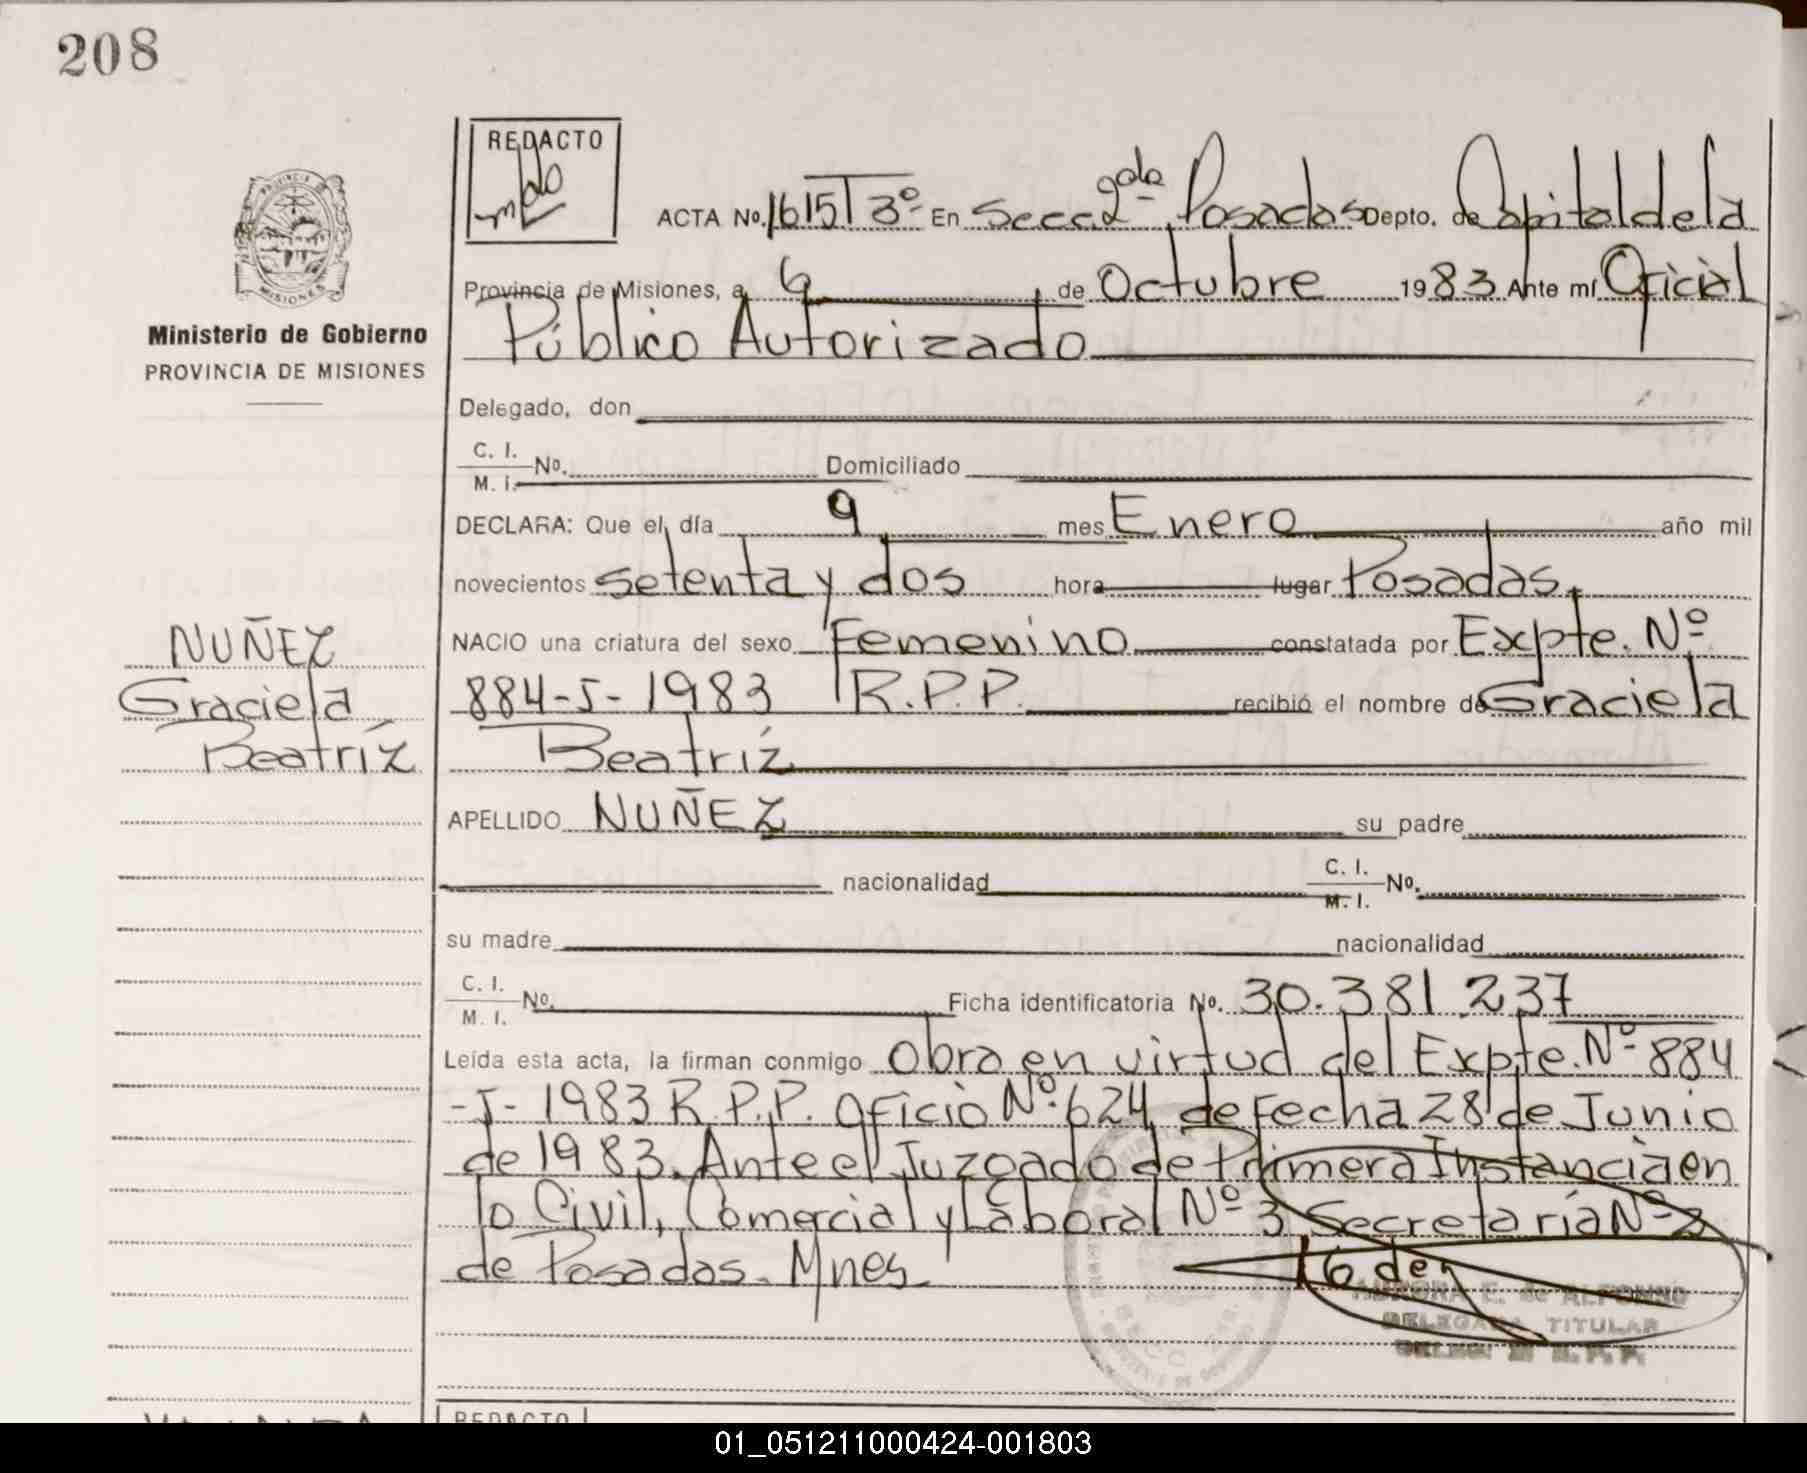 208
REDACTO
ACTA No. 1615 T 3º En Secc. 2da Posadas Depto. de Capital de la
Provincia de Misiones, a 6 de Octubre 1983 Ante mí Oficial
Público Autorizado
Ministerio de Gobierno
PROVINCIA DE MISIONES
Delegado, don
C. I.
M. I. No. Domiciliado
DECLARA: Que el día 9 mes Enero año mil
novecientos setenta y dos hora lugar Posadas.
NACIO una criatura del sexo Femenino constatada por Expte. Nº
884-J-1983 R.P.P. recibió el nombre de Graciela
Beatríz
NUÑEZ
Graciela
Beatríz
APELLIDO NUÑEZ su padre
nacionalidad C. I.
M. I. No.
su madre nacionalidad
C. I.
M. I. No. Ficha identificatoria No. 30.381.237
Leída esta acta, la firman conmigo Obra en virtud del Expte. Nº 884
-J- 1983 R.P.P. Oficio Nº 624 de fecha 28 de Junio
de 1983. Ante el Juzgado de Primera Instancia en
lo Civil, Comercial y Laboral Nº 3 Secretaría Nº
de Posadas. Mnes.
AURORA E. de ALFONSO
DELEGADA TITULAR
REDACTO
01_051211000424-001803